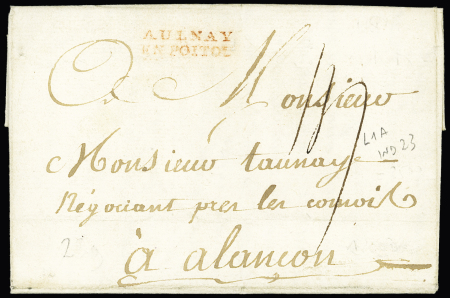 AULNAY
EN POITOU
A Monsieur
Monsieur taunay
Négociant pres les
à alançon
L1A
IND 23
2